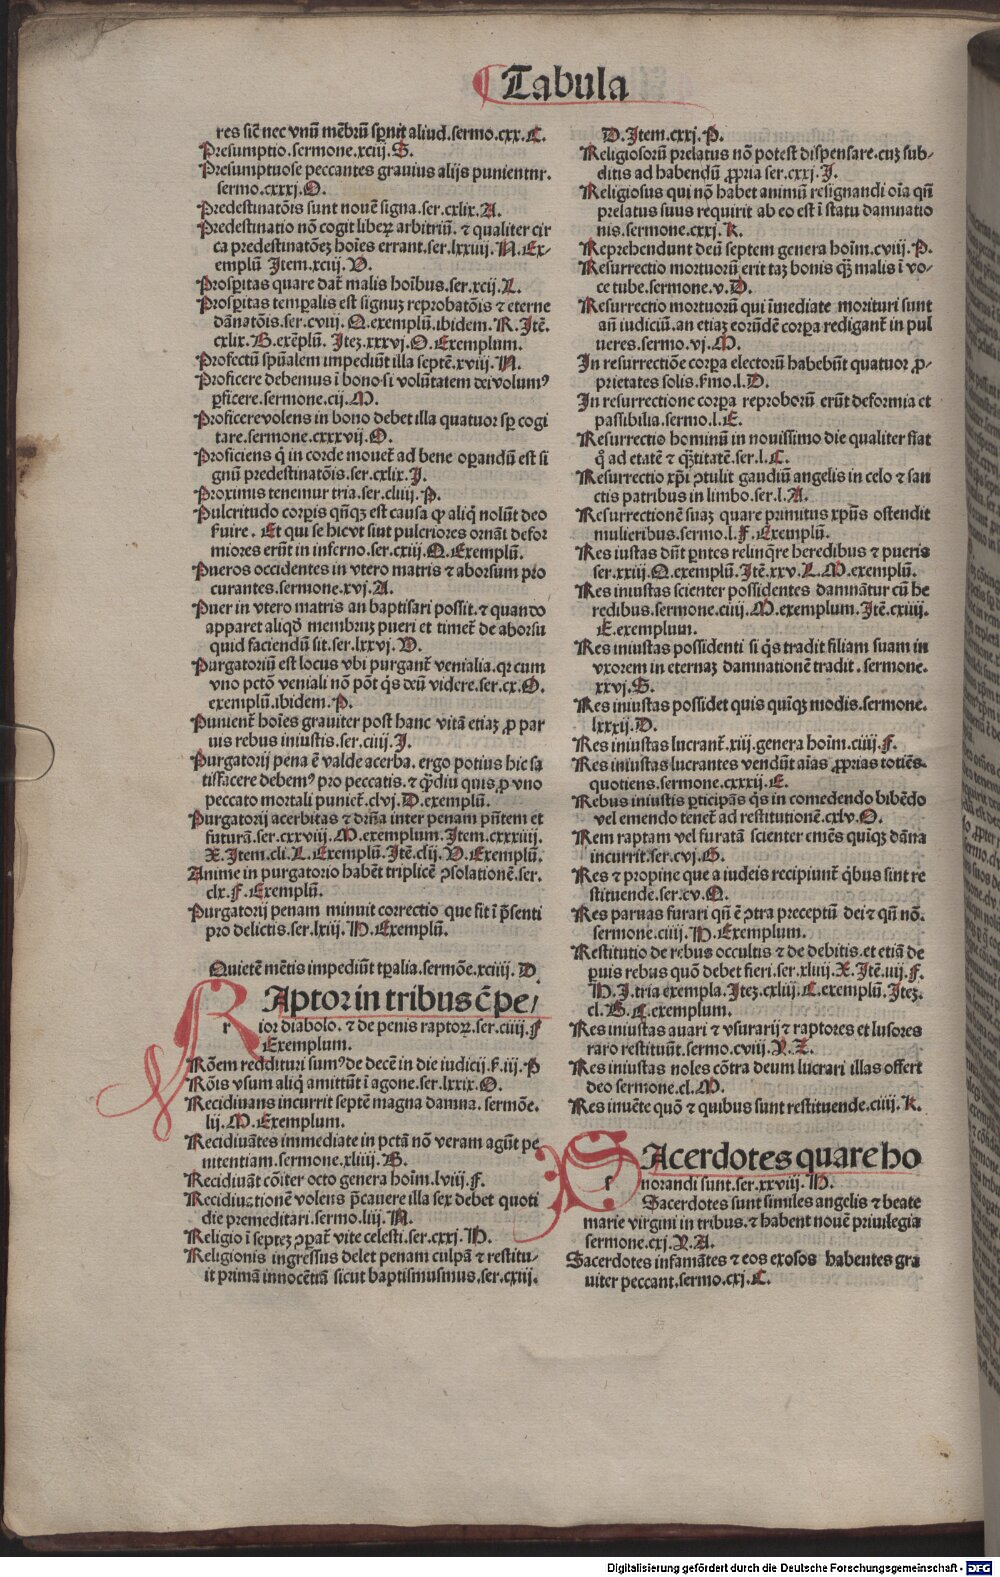 Tabula
res sic̄ nec vnū mēbrū sp̄nit aliud.sermo.cxx.C.
Presumptio.sermone.xciij.S.
Presumptuose peccantes grauius alijs punientur.
sermo.cxxxj.O.
Predestinatōis sunt nouē signa.ser.cxlix.A.
Predestinatio nō cogit liberꝝ arbitriū. ⁊ qualiter cir
ca predestinatōeꝫ hoīes errant.ser.lxxiiij.N.Ex-
emplū Item.xcij.V.
Prosꝑitas quare dat̄ malis hoībus.ser.xcij.L.
Prosꝑitas temꝑalis est signuꝫ reprobatōis ⁊ eterne
dānatōis.ser.cviij.Q.exemplū.ibidem.R.Itē.
cxlix.B.exēplū. Iteꝫ.xxxvj.O.Exemplum.
Profectū spūalem impediūt illa septē.xviij.N.
Proficere debemus ī bono si volūtatem dei volumꝰ
ꝑficere.sermone.cij.M.
Proficere volens in bono debet illa quatuor sꝑ cogi
tare.sermone.cxxxvij.O.
Proficiens q̄ in corde mouet̄ ad bene oꝑandū est si
gnū predestinatōis.ser.cxlix.I.
Proximis tenemur tria.ser.cliiij.P.
Pulcritudo corꝑis qn̄qꝫ est causa ꝙ aliq̄ nolūt deo
ẜuire. Et qui se hic vt sint pulcriores ornāt defor
miores erūt in inferno.ser.cxiij.Q.Exemplū.
Pueros occidentes in vtero matris ⁊ aborsum pro
curantes.sermone.xvj.A.
Puer in vtero matris an baptisari possit.⁊ quando
apparet aliqd̄ membruꝫ pueri et timet̄ de aborsu
quid faciendū sit.ser.lxxvj.V.
Purgatoriū est locus vbi purgant̄ venialia.qꝛ cum
vno pctō veniali nō pōt q̄s deū videre.ser.cx.O.
exemplū.ibidem.P.
Punient̄ hoīes grauiter post hanc vitā etiaꝫ ꝓ par
uis rebus iniustis.ser.ciiij.I.
Purgatorij pena ē valde acerba. ergo potius hic sa
tisfacere debemꝰ pro peccatis. ⁊ q̄diu quis ꝓ vno
peccato mortali puniet̄.clvj.D.exemplū.
Purgatorij acerbitas ⁊ dr̄na inter penam pn̄tem et
futurā.ser.cxxviij.M.exemplum.Item.cxxxiiij.
X.Item.cli.L.Exemplū.Itē.clij.V.Exemplū.
Anime in purgatorio habēt triplicē ꝯsolationē.ser.
clx.F.Exemplū.
Purgatorij penam minuit correctio que fit ī p̄senti
pro delictis.ser.lxiij.N.Exemplū.
Quietē mētis impediūt tꝑalia.sermōe.xciiij.D
RAptor in tribus ē pe/
r ior diabolo.⁊ de penis raptoꝝ.ser.ciiij.F
Exemplum.
Rōem reddituri sumꝰ de decē in die iudicij.ẜ.iij.P
Rōis vsum aliq̄ amittūt ī agone.ser.lxxix.O.
Recidiuans incurrit septē magna damna. sermōe.
lij.M.Exemplum.
Recidiuātes immediate in pctā nō veram agūt pe
nitentiam.sermone.xliiij.B.
Recidiuāt cōiter octo genera hoīm.lviij.F.
Recidiuationē volens p̄cauere illa sex debet quoti
die premeditari.sermo.liij.N.
Religio ī septeꝫ ꝯꝑat̄ vite celesti.ser.cxxj.H.
Religionis ingressus delet penam culpā ⁊ restitu-
it primā innocētiā sicut baptismusmus.ser.cxiij.
D.Item.cxxj.P.
Religiosorū prelatus nō potest dispensare.cuꝫ sub-
ditis ad habendū ꝓpria ser.cxxj.I.
Religiosus qui nō habet animū resignandi oīa qn̄
prelatus suus requirit ab eo est ī statu damnatio
nis.sermone.cxxj.K.
Reprehendunt deū septem genera hoīm.cviij.P.
Resurrectio mortuorū erit taꝫ bonis qꝫ malis ī vo-
ce tube.sermone.v.D.
Resurrectio mortuorū qui īmediate morituri sunt
an̄ iudiciū.an etiaꝫ eorūdē corꝑa redigant̄ in pul
ueres.sermo.vj.M.
In resurrectiōe corꝑa electorū habebūt quatuor ꝓ-
prietates solis.ẜmo.l.D.
In resurrectione corꝑa reproborū erūt deformia et
passibilia.sermo.l.E.
Resurrectio hominū in nouissimo die qualiter fiat
q̊ ad etatē ⁊ q̄ntitatē.ser.l.C.
Resurrectio xp̄i ꝯtulit gaudiū angelis in celo ⁊ san
ctis patribus in limbo.ser.l.A.
Resurrectionē suaꝫ quare primitus xp̄us ostendit
mulieribus.sermo.l.F.Exemplū.
Res iustas dn̄t ꝑntes relinq̄re heredibus ⁊ pueris
ser.xxiij.Q.exemplū.Itē.xxv.L.M.exemplū.
Res iniustas scienter possidentes damnātur cū he
redibus.sermone.ciiij.M.exemplum.Itē.cxiiij.
E.exemplum.
Res iniustas possidenti si q̄s tradit filiam suam in
vxorem in eternaꝫ damnationē tradit.sermone.
xxvj.S.
Res iniustas possidet quis quīqꝫ modis.sermone.
lxxij.D.
Res iniustas lucrant̄.xiij.genera hoīm.ciiij.F.
Res iniustas lucrantes vendūt aīas ꝓprias totiēs
quotiens.sermone.cxxxij.E.
Rebus iniustis ꝑticipās q̄s in comedendo bibēdo
vel emendo tenet̄ ad restitutionē.cxlv.O.
Rem raptam vel furatā scienter emēs quīqꝫ dāna
incurrit.ser.cvj.G.
Res ⁊ propine que a iudeis recipiunt̄ q̄bus sint re
stituende.ser.cv.Q.
Res paruas furari qn̄ ē ꝯtra preceptū dei ⁊ qn̄ nō.
sermone.ciiij.N.Exemplum.
Restitutio de rebus occultis ⁊ de debitis.et etiā de
puis rebus quō debet fieri.ser.xliiij.X.Itē.iij.F.
H.I.tria exempla.Iteꝫ.cxliij.C.exemplū.Iteꝫ.
cl.B.C.exemplum.
Res iniustas auari ⁊ vsurarij ⁊ raptores et lusores
raro restituūt.sermo.cviij.Y.Z.
Res iniustas noles cōtra deum lucrari illas offert
deo sermone.cl.M.
Res inuēte quō ⁊ quibus sunt restituende.ciiij.K.
SAcerdotes quare ho
ſ norandi sunt.ser.xxviij.H.
Sacerdotes sunt similes angelis ⁊ beate
marie virgini in tribus.⁊ habent nouē priuilegia
sermone.cxj.Y.A.
Sacerdotes infamātes ⁊ eos exosos habentes gra
uiter peccant.sermo.cxj.C.
Digitalisierung gefördert durch die Deutsche Forschungsgemeinschaft - DFG